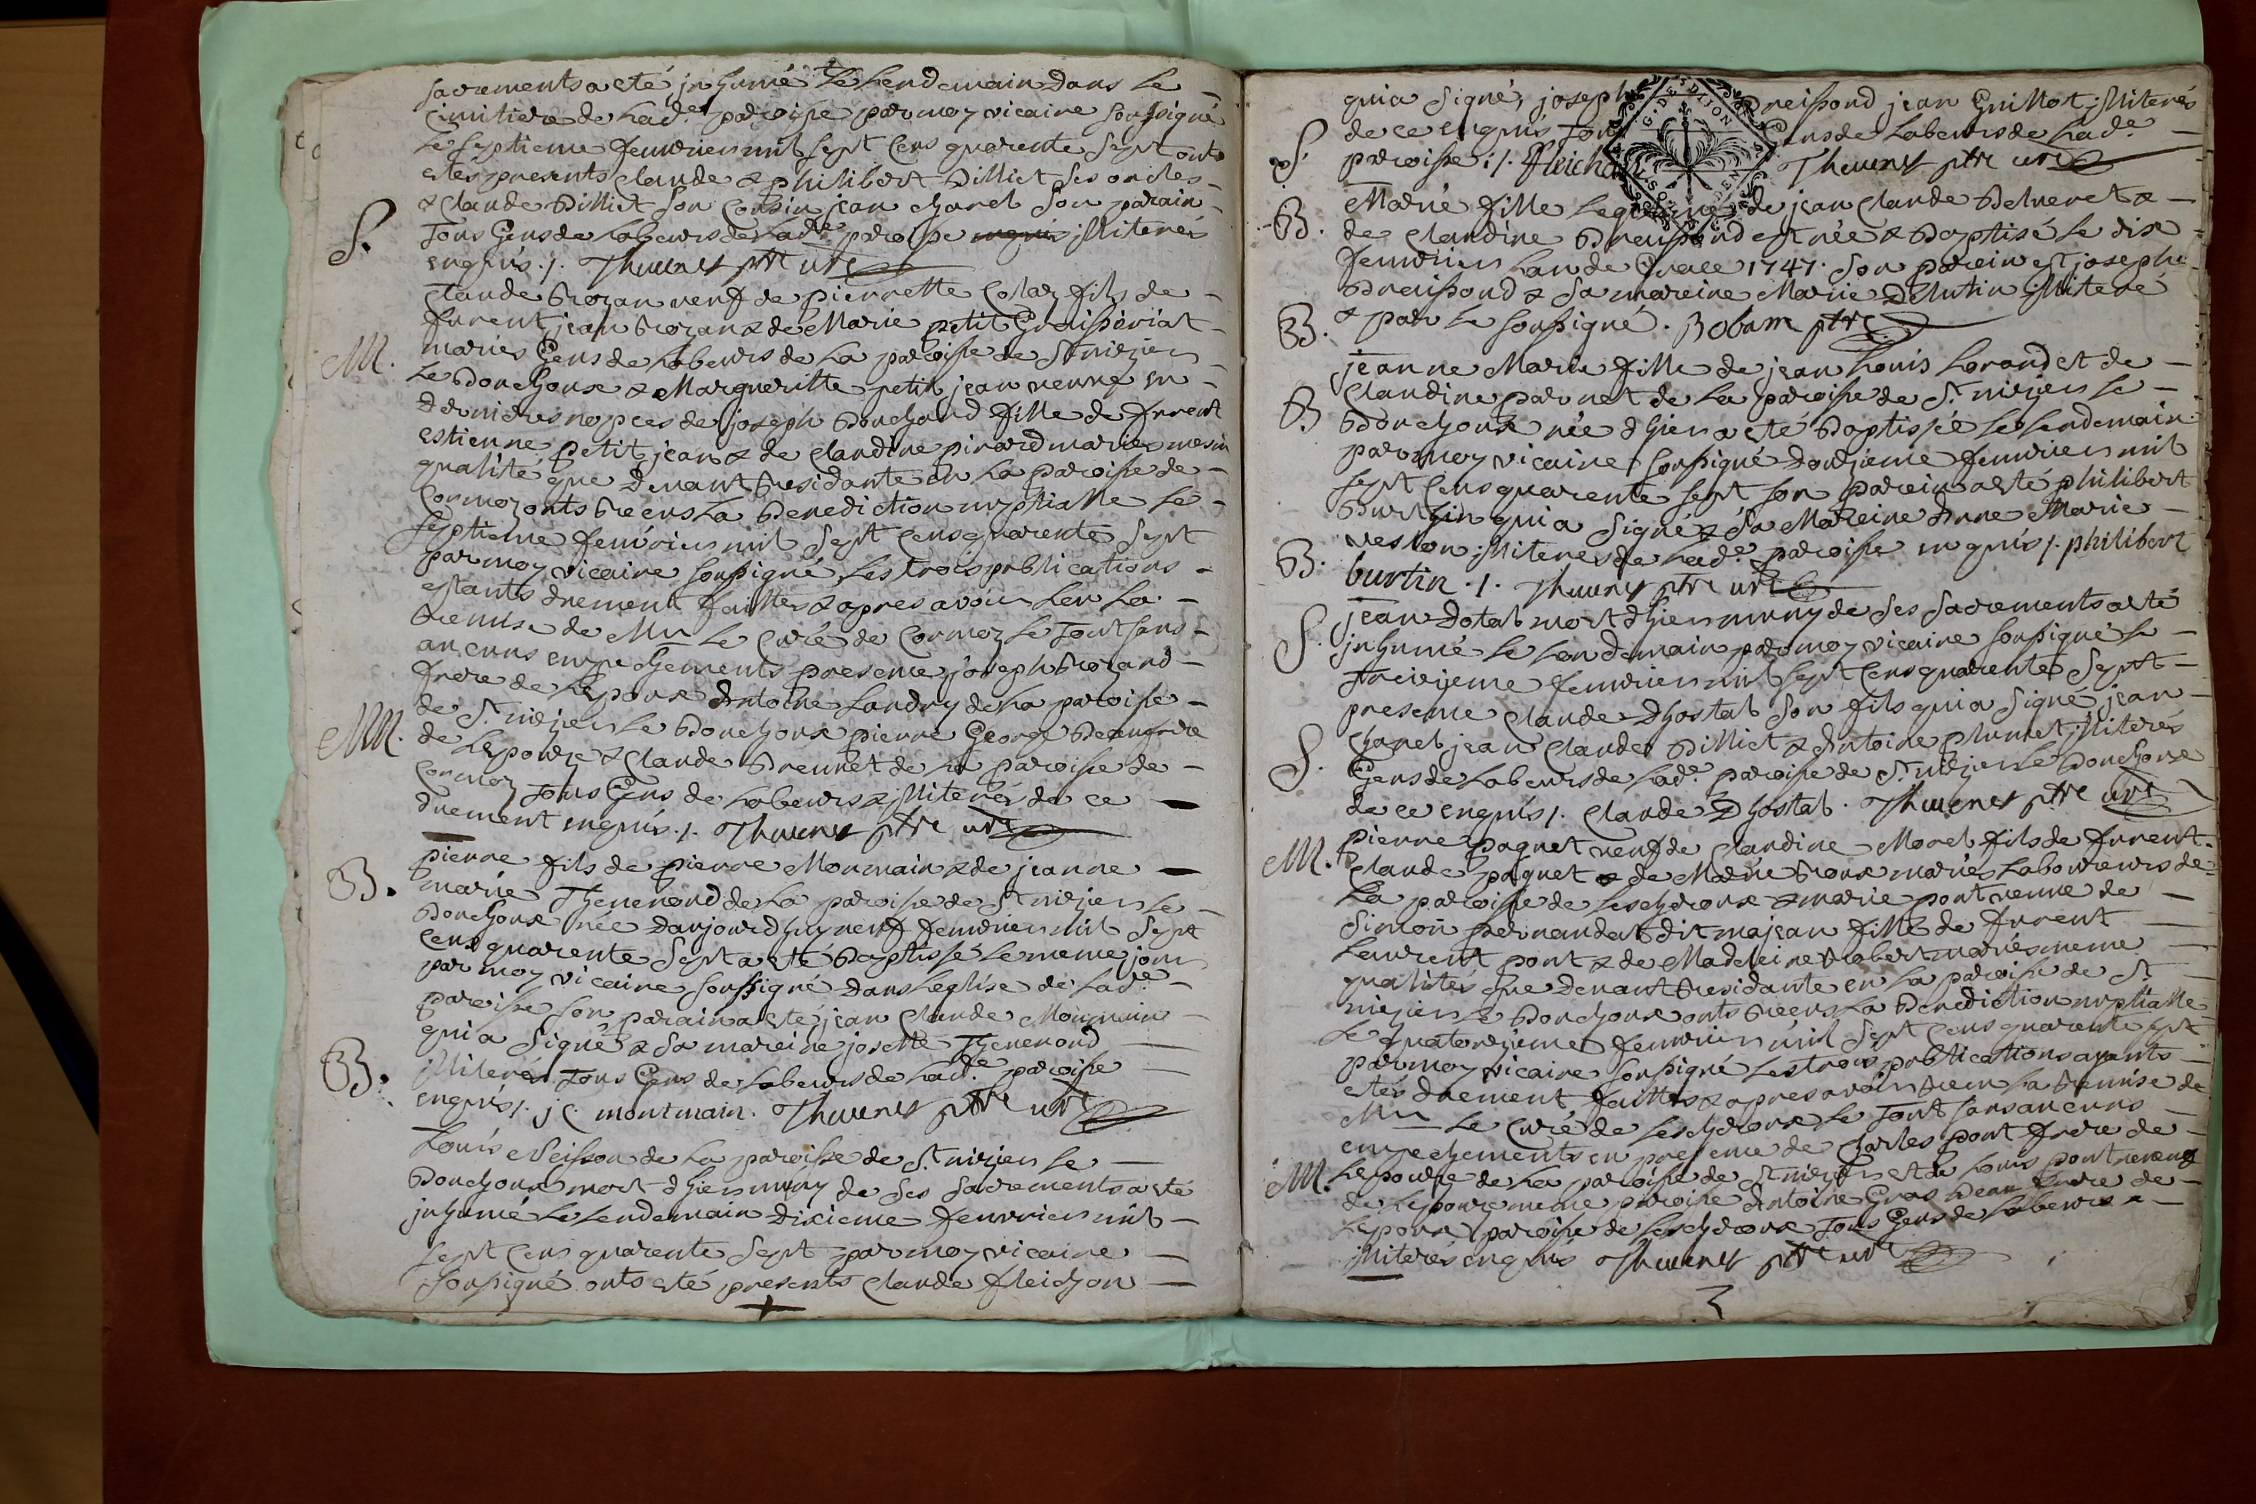 sacrements a eté inhumé le Lendemain dans le
Cimitiere de Lad.e paroisse par moy vicaire soussigné
Le septieme feuvrier mil sept Cens quarente sept onts
etés presents Claude & philibert Billiet ses oncles
& Claude Billiet son Cousin jean Chanel son parain
S. Tous Gens de Labeurs de Lad.e paroisse illiterés
enquis ./. Thevenet ptre vre
Claude Bozan veuf de pierrette Colas fils de
furent jean Bozan & de Marie petit
M. mariés Gens de Labeurs de La paroisse de St nizier
Le Bouchoux & Margueritte petit jean veuve en
dernieres nopces de joseph Bouchard fille de furent
estienne petit jean & de Claudine pirard mariés mesme
qualité que devant Residante en La paroisse de
Cormoz onts Recus La Benediction nuptialle Le
septieme feuvrier mil sept Cens quarente sept
par moy vicaire soussigné Les trois publications
estants duement faittes & apres avoir Leu La
Remise de Mr Le Curé de Cormoz Le Tout sans
aucuns empechements presence joseph Bozand
frere de Lepoux Antoine Landry de La paroisse
MM. de St nizier Le Bouchoux pierre George
de Lepouze & Claude Brennet de La paroisse de
Cormoz Tous Gens de Labeurs & illiterés de ce
duement enquis ./. Thevenet ptre vre
B. pierre fils de pierre Monmain & de jeanne
marie Thevenord de La paroisse de St nizier Le
Bouchoux née d'aujourdhuy neuf feuvrier mil sept
Cens quarente sept a eté Baptissé Le meme jour
par moy vicaire soussigné dans Leglise de Lad.e
paroisse son parain a eté jean Claude Monmain
qui a signé & sa mareine josette Thevenord
B. illiterés Tous Gens de Labeurs de Lad.e paroisse
enquis /. j c. montmain. Thevenet ptre vre
Louis de La paroisse de St nizier Le
Bouchoux mort dhier muny de ses sacrements a eté
inhumé Le Lendemain dixieme feuvrier mil
sept Cens quarente sept par moy vicaire
soussigné onts eté presents Claude fleichon
qui a signé, joseph Breissond jean Guillot illiterés
de ce enquis Tous Gens de Labeurs de Lad.e
S. paroisse ./. Thevenet ptre vre
G. DE DIJON
B. Marie fille de jean Claude &
de Claudine Breissond est née & Baptisé Le dix
feuvrier Lan de Grace 1747. son parein est joseph
Breissond & sa mareine Marie illiteré
B. & par Le soussigné. Bobam ptre
jeanne Marie fille de jean Louis Lorand et de
Claudine parnet de La paroisse de St nizier Le
B Bouchoux née dhier a eté Baptissée Le Lendemain
par moy vicaire soussigné douzieme feuvrier mil
sept Cens quarente sept son parein a eté philibert
Burtin qui a signé & sa Mareine Anne Marie
illiterés de Lad.e paroisse enquis /. philibert
B. burtin ./. Thevenet ptre vre
jean Dotal mort dhier muny de ses sacrements a eté
S. inhumé Le Lendemain par moy vicaire soussigné Le
treizieme feuvrier mil sept Cens quarente sept
presence Claude Dhostal son fils qui a signé jean
Chanel jean Claude Billiet & Antoine plumet illiterés
S. Gens de Labeurs de Lad.e paroisse de St nizier Le Bouchoux
de ce enquis /. Claude Dhostal. Thevenet ptre vre
pierre paquet veuf de Claudine Morel fils de furent
M. Claude paquet & de Marie mariés Laboureurs de
La paroisse de Lescheroux & marie pont veuve de
Simon dit majean fille de furent
Laurent pont & de Madeleine Robert mariés meme
qualités que devant Residante en La paroisse de St
nizier Le Bouchoux onts Recus La Benediction nuptialle
Le quatorzieme feuvrier mil sept Cens quarente sept
par moy vicaire soussigné Les trois publications ayants
etés duement faittes & apres avoir Receu La Remise de
Mr Le Curé de Lescheroux Le Tout sans aucuns
empechements en presence de Charles pont frere de
M. Lepouse de La paroisse de St nizier et de Louis pont
de Lepouze meme paroisse Antoine Gras beau frere de
Lepoux paroisse de Lescheroux Tous Gens de Labeurs &
illiterés enquis Thevenet ptre vre
3